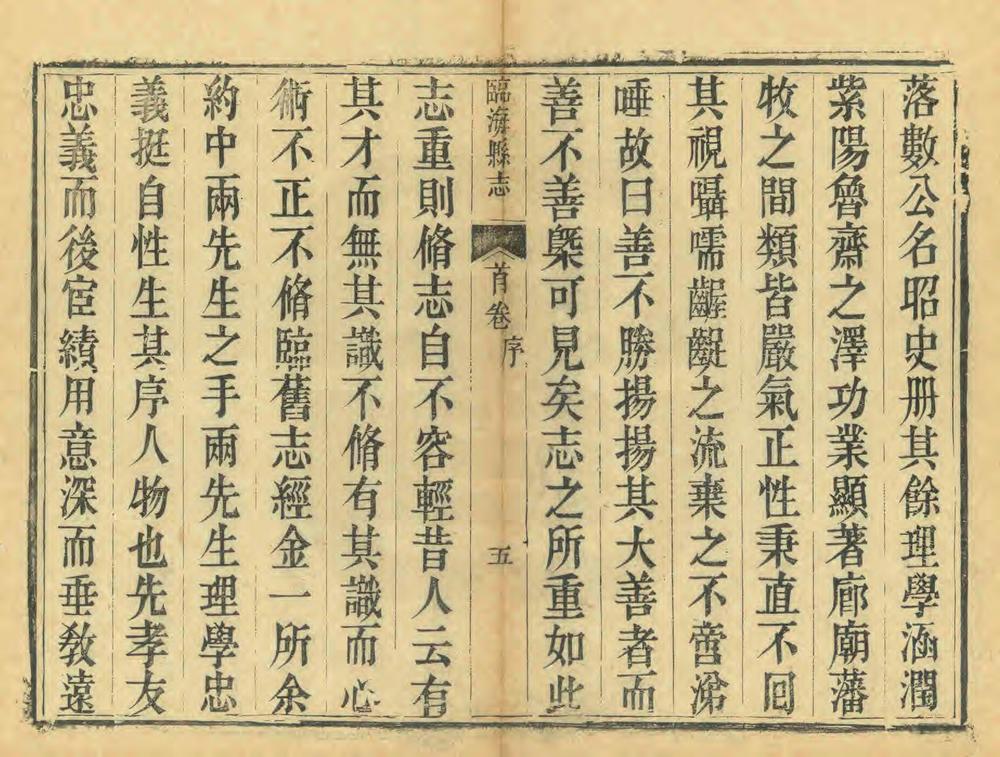 落數公名昭史册其餘理學涵濶
紫陽魯齋之澤功業顯著廊廟藩
牧之間類皆嚴氣正性秉直不囘
其視囁嚅齷齪之流棄之不啻涕
唾故曰善不勝揚揚其大善者而
善不善槩可見矣志之所重如此
臨海縣志 首卷 序 五
志重則脩志自不容輕昔人云有
其才而無其識不脩有其識而心
術不正不脩臨舊志經金一所余
約中兩先生之手兩先生理學忠
義挺自性生其序人物也先孝友
忠義而後宦績用意深而垂敎遠